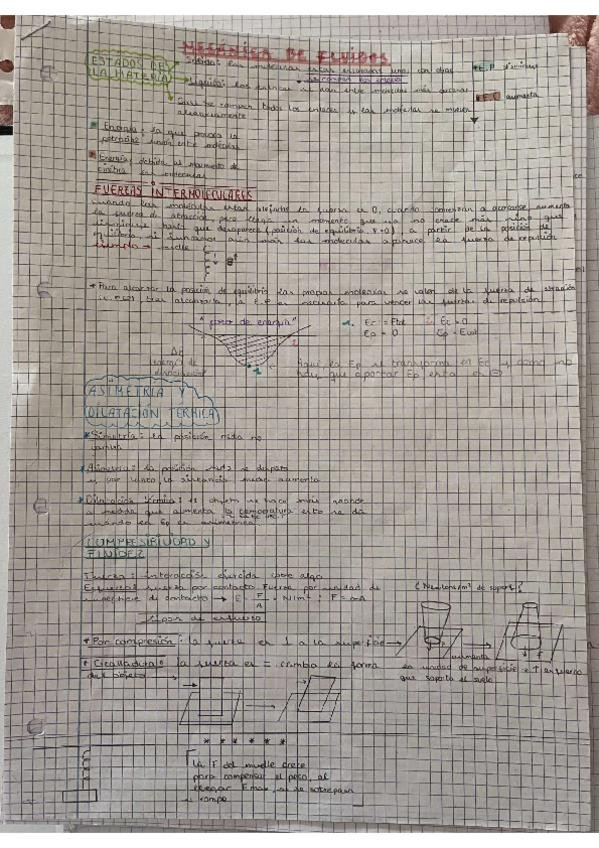 MECÁNICA DE FLUIDOS
ESTADOS DE
LA MATERIA
Sólido: las moléculas están enlazadas unas con otras
Líquido: los enlaces se dan entre moléculas más cercanas
Gas: se rompen todos los enlaces y las moléculas se mueven
aleatoriamente
E.P
E.C aumenta
Energía: la que provoca la
potencial unión entre moléculas
Energía: debida al movimiento de
cinética las moléculas
FUERZAS INTERMOLECULARES
Cuando las moléculas están alejadas la fuerza es 0, cuando comienzan a acercarse aumenta
la fuerza de atracción, pero llega un momento que ya no crece más sino que
disminuye hasta que desaparece (posición de equilibrio, F=0), a partir de la posición de
equilibrio si juntamos aún más las moléculas aparece la fuerza de repulsión
Ejemplo → muelle
* Para alcanzar la posición de equilibrio las propias moléculas se valen de la fuerza de atracción
tras alcanzarla, la E.P es necesaria para vencer las fuerzas de repulsión
"pozo de energía"
1. Ec = Ftot
Ep = 0
2. Ec = 0
Ep = Etot
ΔE
energía de
la Ep se transforma en Ec y como no
hay que aportar Ep, esta es ⊖
ASIMETRÍA Y
DILATACIÓN TÉRMICA
* Simetría: la posición media no
cambia
* Asimetría: la posición media se desplaza
y por tanto la distancia media aumenta
* Dilatación térmica: el objeto se hace más grande
a medida que aumenta la temperatura esto se da
cuando la Ep es asimétrica
COMPRESIBILIDAD Y
FLUIDEZ
Fuerza: interacción ejercida sobre algo
Esfuerzo: fuerza por contacto Fuerza por unidad de
superficie de contacto → E = F/A = N/m² ; F = σ·A
Tipos de esfuerzo
* Por compresión: la fuerza es ⊥ a la superficie
* Cizalladura: la fuerza es = cambia la forma
del objeto
(Newtons/m² de soporte)
aumenta
la unidad de superficie = ↑ esfuerzo
que soporta el suelo
* * * * * *
La F del muelle crece
para compensar el peso, al
llegar Emax, si se sobrepasa
se rompe